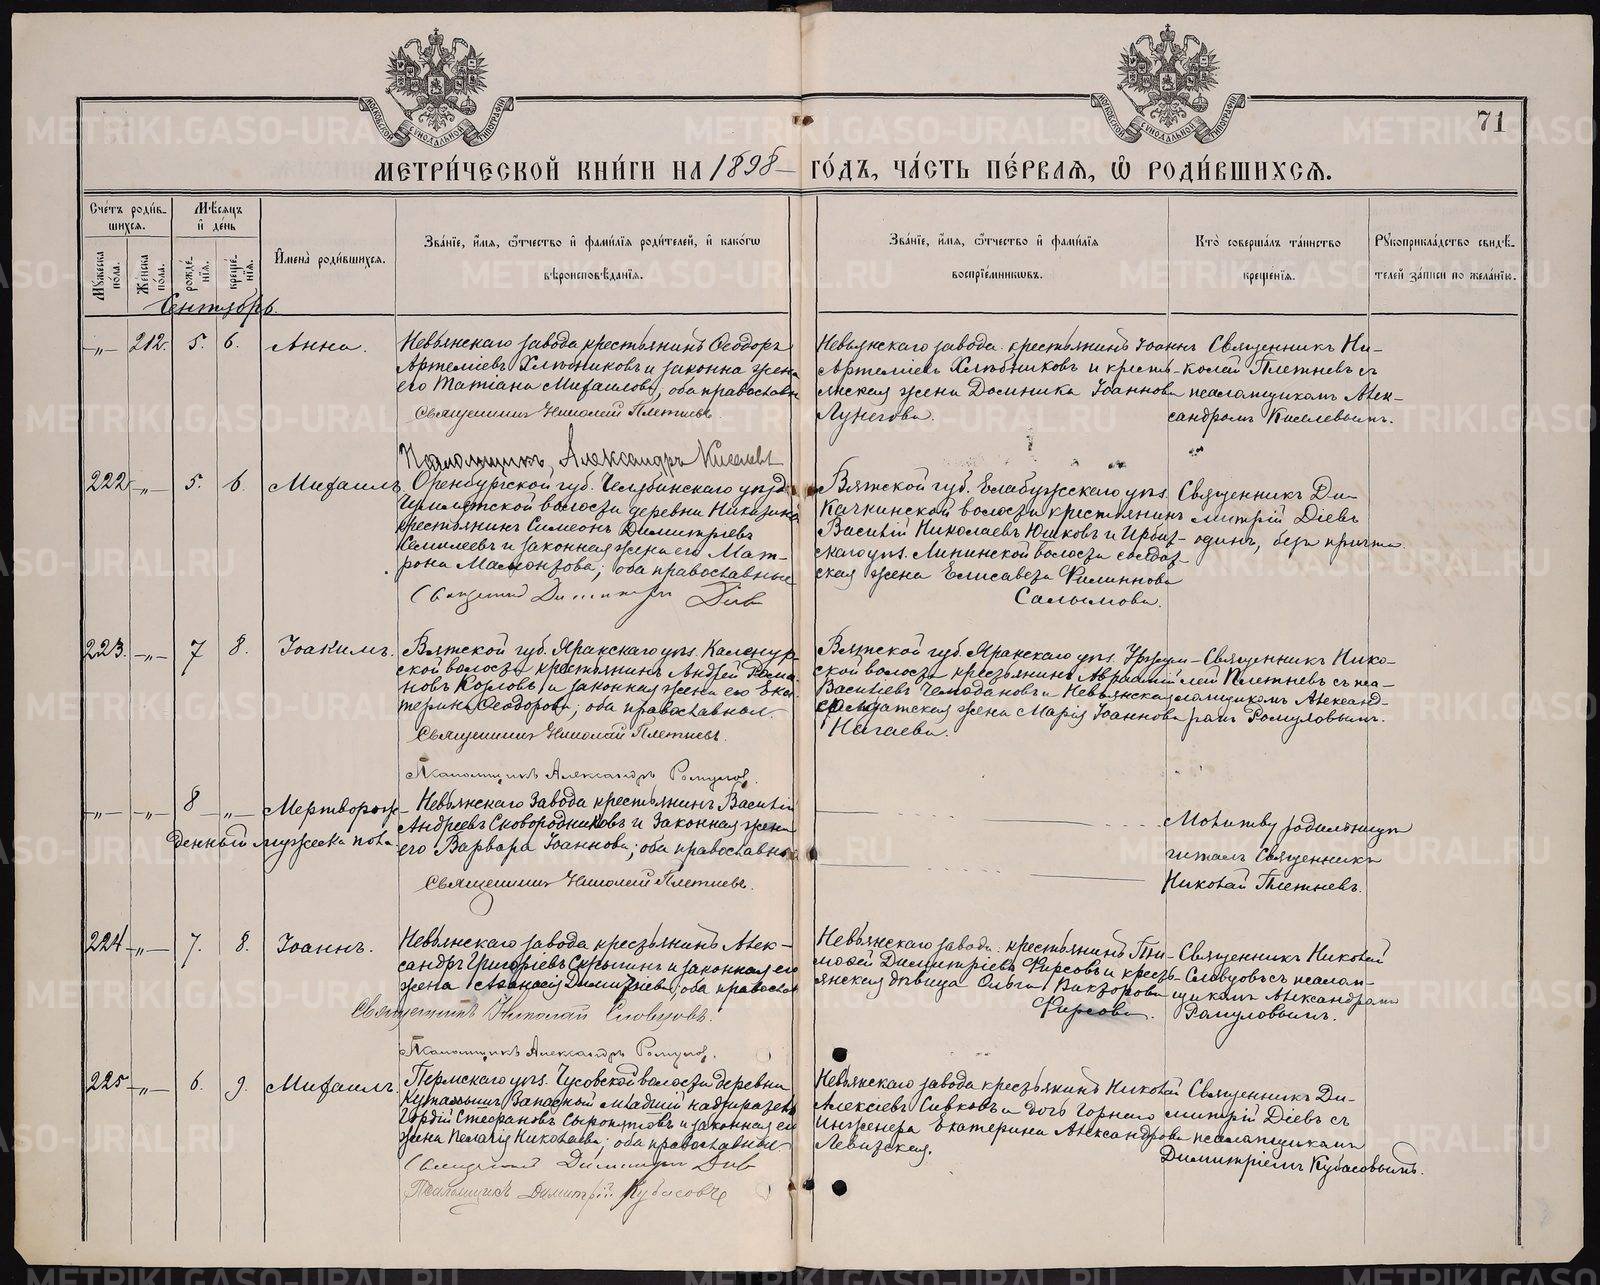 71
МЕТРИ́ЧЕСКОЙ КНИ́ГИ НА 1898 ГО́ДЪ, ЧА́СТЬ ПЕ́РВАЯ, Ѡ҆ РОДИ́ВШИХСЯ.
Сче́тъ роди́в-
шихся.
Мужеска по́ла.
Же́нска по́ла.
Мѣ́сяцъ и҆ де́нь
рожде́-нїя.
креще́-нїя.
И҆мена̀ роди́вшихся.
Зва́нїе, и҆́мя, ѻ҆́тчество и҆ фами́лїя роди́телей, и҆ како́гѡ
вѣроисповѣ́данїя.
Зва́нїе, и҆́мя, ѻ҆́тчество и҆ фами́лїя
воспрїе́мниковъ.
Кто̀ соверша́лъ та́инство
креще́нїя.
Рꙋкоприкла́дство свидѣ́-
телей за́писи по жела́нїю.
Сентябрь.
-„- 212. 5. 6. Анна.
Невьянскаго завода крестьянинъ Ѳеодоръ
Артемiевъ Хлѣбниковъ и законна жена
его Татiана Михаилова; оба православн
Священникъ Николай Плетневъ.
Псаломщикъ, Александръ Киселевъ
Невьянскаго завода крестьянинъ Iоаннъ
Артемiевъ Хлѣбниковъ и кресть-
янская жена Домника Iоаннова
Лунегова.
Священникъ Ни-
колай Плетневъ съ
псаломщикомъ Алек-
сандромъ Киселевымъ.
222 -„- 5. 6. Михаилъ
Оренбургской губ. Челябинскаго уѣзд
волости деревни
крестьянинъ Симеонъ Димитрiевъ
и законная жена его Мат-
рона Мамонтова; оба православные
Священникъ Димитрiй Дiевъ
Вятской губ. Елабужскаго уѣз.
волости крестьянинъ
Василiй Николаевъ Юшковъ и Ирбит-
скаго уѣз. Липинской волости солдат-
ская жена Елисавета Филиппова
Салымова.
Священникъ Ди-
митрiй Дiевъ
одинъ, безъ причта.
223. -„- 7 8. Iоакимъ.
Вятской губ. Яранскаго уѣз.
ской волости крестьянинъ Андрей Рома-
новъ Козловъ и законная жена его Ека-
терина Ѳеодорова; оба православная.
Священникъ Николай Плетневъ.
Псаломщикъ Александръ Ромуловъ.
Вятской губ. Яранскаго уѣз.
ской волости крестьянинъ Аврамiй
Василiевъ Чемодановъ и Невьянская
солдатская жена Марiя Iоаннова
Нагаева.
Священникъ Нико-
лай Плетневъ съ пса-
ломщикомъ Александ-
ромъ Ромуловымъ.
-„- -„- 8 -„- Мертворож-
денный мужеска пола.
Невьянскаго Завода крестьянинъ Василiй
Андреевъ Сковородниковъ и Законная жена
его Варвара Iоаннова; оба православно
Священникъ Николай Плетневъ.
Молитву родильницы
читалъ Священникъ
Николай Плетневъ.
224 -„- 7. 8. Iоаннъ.
Невьянскаго завода крестьянинъ Алек-
сандръ Григорiевъ и законная его
жена Аѳанасiя Димитрiева; оба православ
Священникъ Николай Словцовъ.
Псаломщикъ Александръ Ромуловъ.
Невьянскаго завода крестьянинъ Ти-
моѳей Димитрiевъ Фирсовъ и кресть-
янская дѣвица Ольга Викторова
Фирсова.
Священникъ Николай
Словцовъ съ псалом-
щикомъ Александромъ
Ромуловымъ.
225 -„- 6. 9. Михаилъ
Пермскаго уѣз. Чусовской волости деревни
Запасной младшiй надзиратель
Гордiй Стефановъ Сыропятовъ и законная его
жена Пелагiя Николаева; оба православные
Священникъ Димитрiй Дiевъ
Псаломщикъ Димитрiй Кубасовъ
Невьянскаго завода крестьянинъ Николай
Алексiевъ Сивковъ и дочь Горнаго
Инженера Екатерина Александрова
Левитская.
Священникъ Ди-
митрiй Дiевъ съ
псаломщикомъ
Димитрiемъ Кубасовымъ.
METRIKI.GASO-URAL.RU